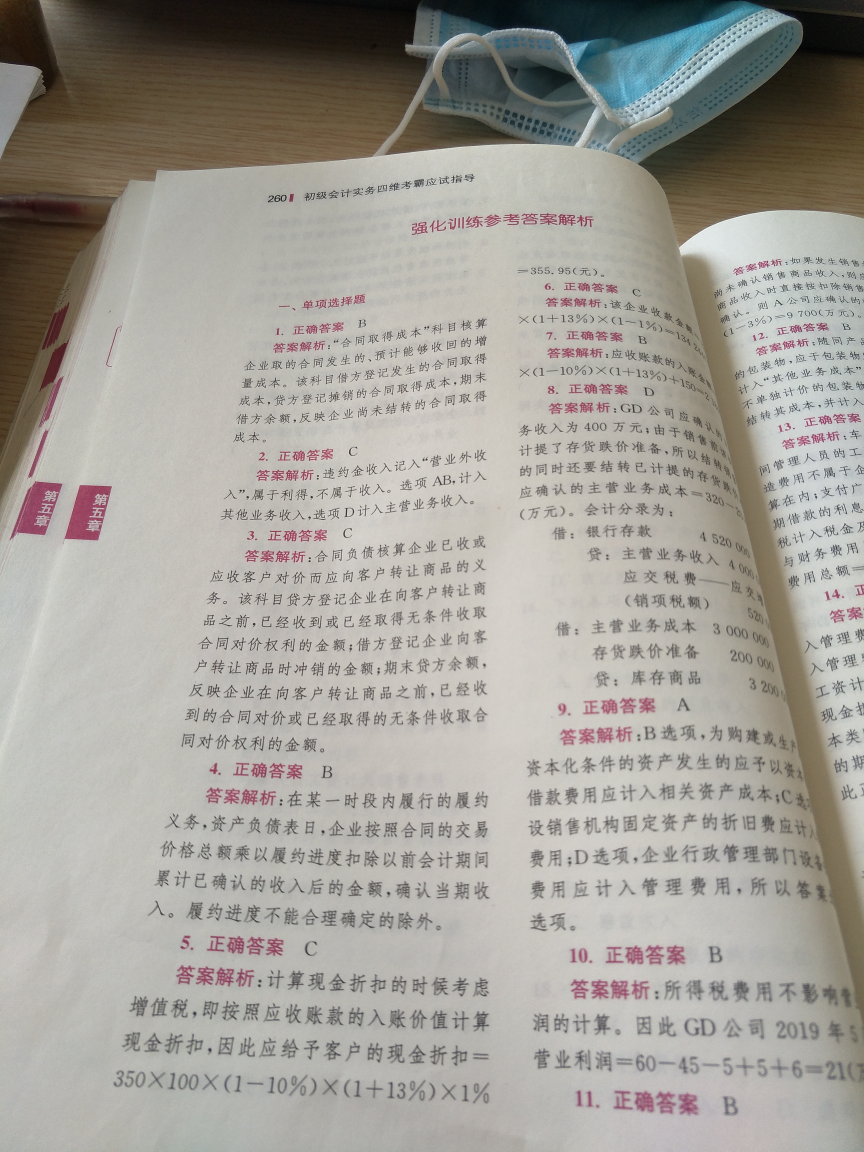 260 初级会计实务四维考霸应试指导
强化训练参考答案解析
一、单项选择题
1. 正确答案 B
答案解析:“合同取得成本”科目核算
企业取的合同发生的、预计能够收回的增
量成本。该科目借方登记发生的合同取得
成本,贷方登记摊销的合同取得成本,期末
借方余额,反映企业尚未结转的合同取得
成本。
2. 正确答案 C
答案解析:违约金收入记入“营业外收
入”,属于利得,不属于收入。选项 AB,计入
其他业务收入,选项 D 计入主营业务收入。
3. 正确答案 C
答案解析:合同负债核算企业已收或
应收客户对价而应向客户转让商品的义
务。该科目贷方登记企业在向客户转让商
品之前,已经收到或已经取得无条件收取
合同对价权利的金额;借方登记企业向客
户转让商品时冲销的金额;期末贷方余额,
反映企业在向客户转让商品之前,已经收
到的合同对价或已经取得的无条件收取合
同对价权利的金额。
4. 正确答案 B
答案解析:在某一时段内履行的履约
义务,资产负债表日,企业按照合同的交易
价格总额乘以履约进度扣除以前会计期间
累计已确认的收入后的金额,确认当期收
入。履约进度不能合理确定的除外。
5. 正确答案 C
答案解析:计算现金折扣的时候考虑
增值税,即按照应收账款的入账价值计算
现金折扣,因此应给予客户的现金折扣=
350×100×(1-10%)×(1+13%)×1%
=355.95(元)。
6. 正确答案 C
答案解析:该企业收款金额
×(1+13%)×(1-1%)=134
7. 正确答案 B
答案解析:应收账款的入账金
×(1-10%)×(1+13%)+150=
8. 正确答案 D
答案解析:GD 公司应确认的
务收入为 400 万元;由于销售前
计提了存货跌价准备,所以结转
的同时还要结转已计提的存货跌
应确认的主营业务成本=320-
(万元)。会计分录为:
借:银行存款 4 520 000
贷:主营业务收入 4 000
应交税费——应交增
(销项税额) 520
借:主营业务成本 3 000 000
存货跌价准备 200 000
贷:库存商品 3 200
9. 正确答案 A
答案解析:B 选项,为购建或生产
资本化条件的资产发生的应予以资本
借款费用应计入相关资产成本;C 选
设销售机构固定资产的折旧费应计入
费用;D 选项,企业行政管理部门设备
费用应计入管理费用,所以答案
选项。
10. 正确答案 B
答案解析:所得税费用不影响营
润的计算。因此 GD 公司 2019 年 5
营业利润=60-45-5+5+6=21(万
11. 正确答案 B
答案解析:如果发生销售
尚未确认销售商品收入,则应
商品收入时直接按扣除销售
确认。则 A 公司应确认的
(1-3%)=9 700(万元)。
12. 正确答案 B
答案解析:随同产品
的包装物,应于包装物
计入“其他业务成本”
不单独计价的包装物
结转其成本,并计入
13. 正确答案
答案解析:车
间管理人员的工
造费用不属于企
算在内;支付广
期借款的利息
税计入税金及
与财务费用
费用总额=
14. 正
答案
入管理费
入管理
工资计
现金折
本类
的期
此
第五章
第五章